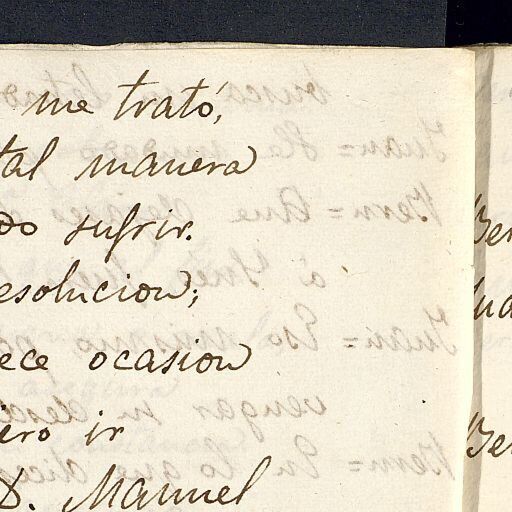 me trató,
tal manera
do sufrir.
esolucion;
ece ocasion
ero ir
D. Manuel
Ber
Jua
Ber